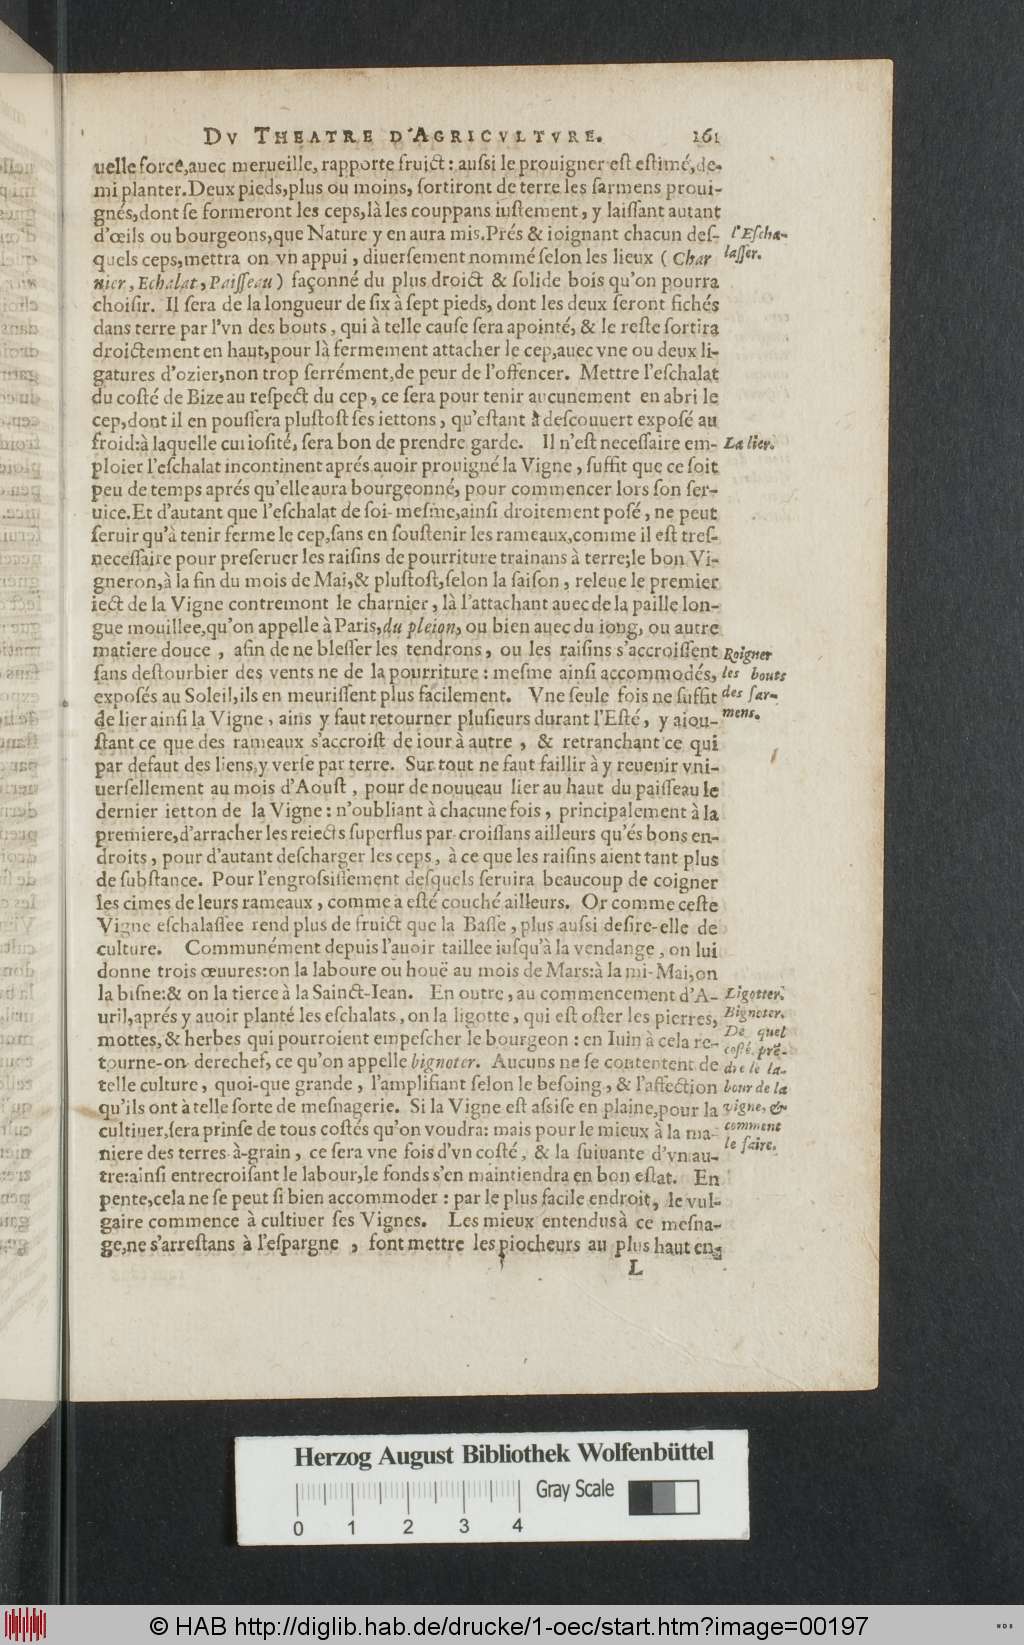 DV THEATRE D'AGRICVLTVRE. 161
uelle force, auec merueille, rapporte fruict: aussi le prouigner est estimé, de-
mi planter. Deux pieds, plus ou moins, sortiront de terre les sarmens proui-
gnés, dont se formeront les ceps, là les couppans iustement, y laissant autant
d'œils ou bourgeons, que Nature y en aura mis. Prés & ioignant chacun des-
quels ceps, mettra on vn appui, diuersement nommé selon les lieux (Char
nier, Echalat, Paisseau) façonné du plus droict & solide bois qu'on pourra
choisir. Il sera de la longueur de six à sept pieds, dont les deux seront fichés
dans terre par l'vn des bouts, qui à telle cause sera apointé, & le reste sortira
droictement en haut, pour là fermement attacher le cep, auec vne ou deux li-
gatures d'ozier, non trop serrément, de peur de l'offencer. Mettre l'eschalat
du costé de Bize au respect du cep, ce sera pour tenir aucunement en abri le
cep, dont il en poussera plustost ses iettons, qu'estant à descouuert exposé au
froid: à laquelle curiosité, sera bon de prendre garde. Il n'est necessaire em-
ploier l'eschalat incontinent aprés auoir prouigné la Vigne, suffit que ce soit
peu de temps aprés qu'elle aura bourgeonné, pour commencer lors son ser-
uice. Et d'autant que l'eschalat de soi-mesme, ainsi droitement posé, ne peut
seruir qu'à tenir ferme le cep, sans en soustenir les rameaux, comme il est tres-
necessaire pour preseruer les raisins de pourriture trainans à terre; le bon Vi-
gneron, à la fin du mois de Mai, & plustost, selon la saison, releue le premier
iect de la Vigne contremont le charnier, là l'attachant auec de la paille lon-
gue mouillee, qu'on appelle à Paris, du pleion, ou bien auec du iong, ou autre
matiere douce, afin de ne blesser les tendrons, ou les raisins s'accroissent
sans destourbier des vents ne de la pourriture: mesme ainsi accommodés,
exposés au Soleil, ils en meurissent plus facilement. Vne seule fois ne suffit
de lier ainsi la Vigne, ains y faut retourner plusieurs durant l'Esté, y aiou-
stant ce que des rameaux s'accroist de iour à autre, & retranchant ce qui
par defaut des liens, y verse par terre. Sur tout ne faut faillir à y reuenir vni-
uersellement au mois d'Aoust, pour de nouueau lier au haut du paisseau le
dernier ietton de la Vigne: n'oubliant à chacune fois, principalement à la
premiere, d'arracher les reiects superflus par-croissans ailleurs qu'és bons en-
droits, pour d'autant descharger les ceps, à ce que les raisins aient tant plus
de substance. Pour l'engrossissement desquels seruira beaucoup de coigner
les cimes de leurs rameaux, comme a esté couché ailleurs. Or comme ceste
Vigne eschalassee rend plus de fruict que la Basse, plus aussi desire-elle de
culture. Communément depuis l'auoir taillee iusqu'à la vendange, on lui
donne trois œuures: on la laboure ou houë au mois de Mars: à la mi-Mai, on
la bisne: & on la tierce à la Sainct-Iean. En outre, au commencement d'A-
uril, aprés y auoir planté les eschalats, on la ligotte, qui est oster les pierres,
mottes, & herbes qui pourroient empescher le bourgeon: en Iuin à cela re-
tourne-on derechef, ce qu'on appelle bignoter. Aucuns ne se contentent de
telle culture, quoi-que grande, l'amplifiant selon le besoing, & l'affection
qu'ils ont à telle sorte de mesnagerie. Si la Vigne est assise en plaine, pour la
cultiuer, sera prinse de tous costés qu'on voudra: mais pour le mieux à la ma-
niere des terres-à-grain, ce sera vne fois d'vn costé, & la suiuante d'vn au-
tre: ainsi entrecroisant le labour, le fonds s'en maintiendra en bon estat. En
pente, cela ne se peut si bien accommoder: par le plus facile endroit, le vul-
gaire commence à cultiuer ses Vignes. Les mieux entendus à ce mesna-
ge, ne s'arrestans à l'espargne, font mettre les piocheurs au plus haut en-
L
l'Escha-
lasser.
La lier.
Roigner
les bouts
des sar-
mens.
Ligotter.
Bignoter.
De quel
costé prē-
dre le la-
bour de la
vigne, &
comment
le faire.
Herzog August Bibliothek Wolfenbüttel
Gray Scale
0 1 2 3 4
© HAB http://diglib.hab.de/drucke/1-oec/start.htm?image=00197